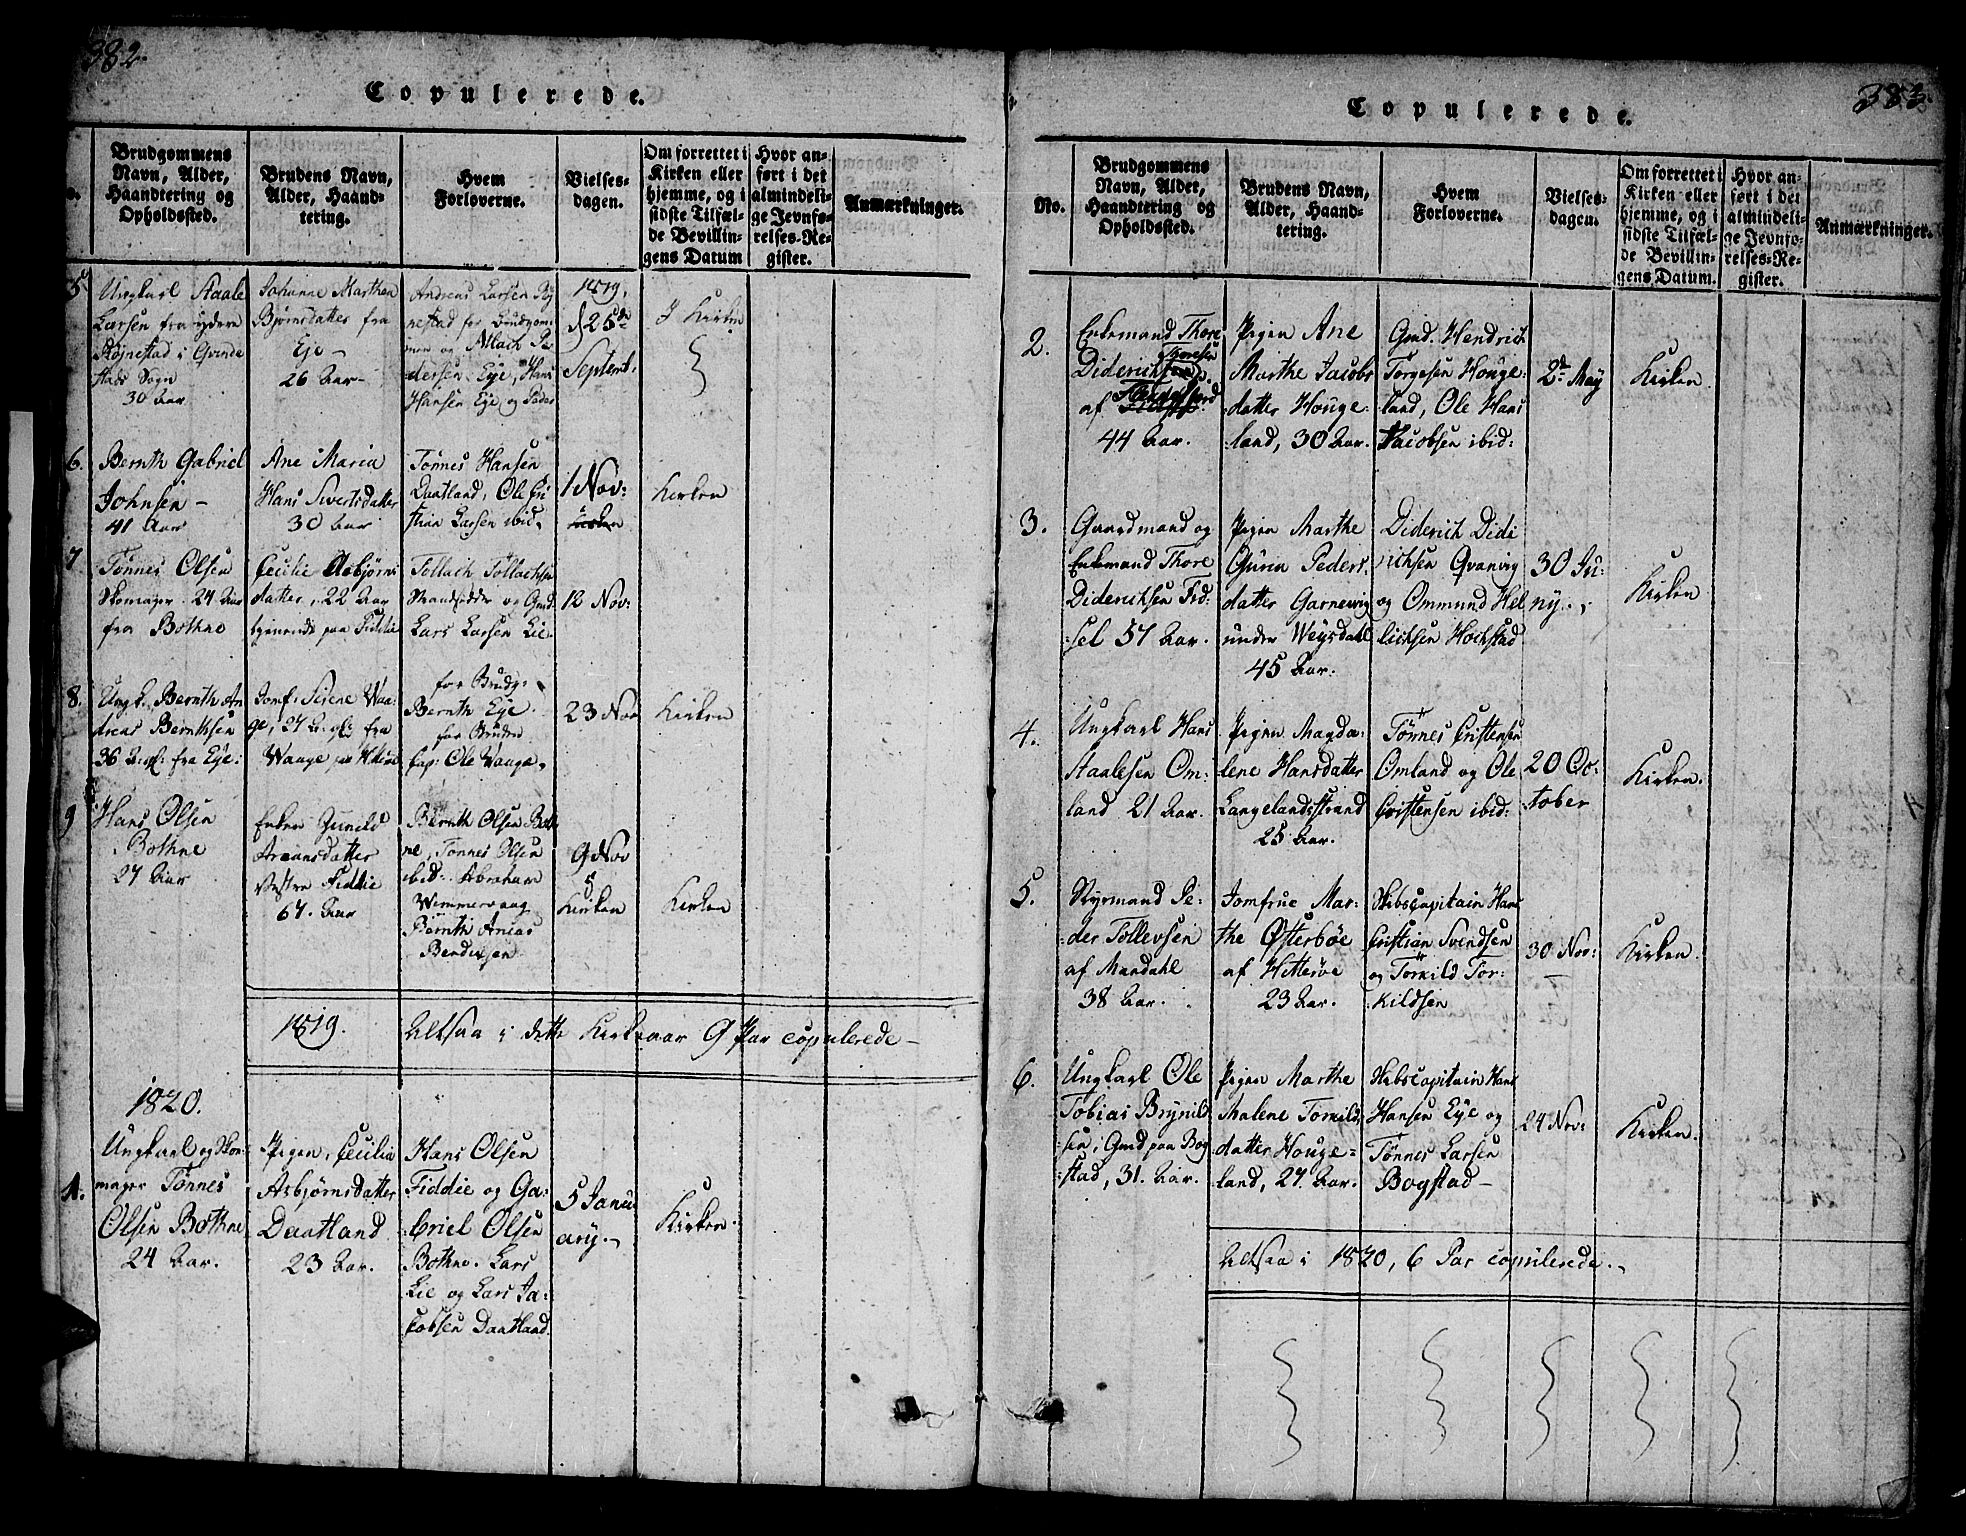 382.
Copulerede.
Brudgommens
Navn, Alder,
Haandtering og
Opholdssted.
Brudens Navn,
Alder, Haand-
tering.
Hvem
Forloverne.
Vielses-
dagen.
Om forrettet i
Kirken eller
hjemme, og i
sidste Tilfæl-
de Bevillin-
gens Datum
Hvor an-
ført i det
almindeli-
ge Jevnfø-
relses-Re-
gister.
Anmærkninger.
5
Ungkarl Staale
Larsen fra ydere
i Qvinde
stads Sogn
30 Aar
Johanne Marthea
Bjørnsdatter fra
Eje -
26 Aar -
Andreas Larsen
for Brudgom-
men og Atlach Pe
dersen Eje, Hans
Hansen Eje og Peder
1819,
d 25de
Septemb.
I Kirken
6.
Bernth Gabriel
Johnsen -
41 Aar
Ane Maria
Hans Sivertsdatter
30 Aar
Tønnes Hansen
Daatland, Ole
Larsen ibid.
1 Nov:
Kirken
7
Tønnes Olsen
Skomager 24 Aar
fra Bothne
Cecilie Asbjørns
datter, 22 Aar
tjenende paa Fiddie
Tollach Tollachsen
og Gmd.
Lars Larsen Lie
12 Nov:
8.
Ungk. Bernth An
dreas Bernthsen
36 A: gl: fra Eje:
Jomf: Serene Waa-
ge, 27 A: gl: fra
Waage paa
for Brudg:
Bernth Eje.
for Bruden
Cap: Ole Waage.
23 Nov
Kirken
9
Hans Olsen
Bothne
27 Aar
Enken Gunild
Areansdatter
Vestre Fiddie
67. Aar
Bernth Olsen Both
ne, Tønnes Olsen
ibid. Abraham
Wimmervaag
Bernth Areas
Berdinsen
9 Nov
i
Kirken
Kirken
1819.
Altsaa i dette Kirkeaar 9 Par copulerede -
1820.
1.
Ungkarl og Sko-
mager Tønnes
Olsen Bothne
24 Aar.
Pigen, Cecilia
Asbjørnsdatter
Daatland
23 Aar.
Hans Olsen
Fiddie og Ga-
briel Olsen
Bothne. Lars
Lie og Lars Ja-
cobsen Daatland
5 Janu
ary.
Kirken.
383.
Copulerede.
No.
Brudgommens
Navn, Alder,
Haandtering og
Opholdssted.
Brudens Navn,
Alder, Haand-
tering.
Hvem
Forloverne.
Vielses-
dagen.
Om forrettet i
Kirken eller
hjemme, og i
sidste Tilfæl-
de Bevillin-
gens Datum.
Hvor an-
ført i det
almindeli-
ge Jevnfø-
relses-Re-
gister.
Anmærkninger.
2.
Enkemand Thore
Thoresen
Diderich
af
44 Aar.
Pigen Ane
Marthe Jacobs
datter Houge-
land, 30 Aar.
Gmd. Hendrich
Torgesen Houge-
land, Ole Hans
Jacobsen ibid:
2de May
Kirken
3.
Gaardmand og
Enkemand Thore
Diderichsen Fid-
sel 57 Aar.
Pigen Marthe
Guren Peders
datter Garnevig
under Weysdahl
45 Aar.
Diderich Dide
richsen Qvanvig
og Ommund Hel
lichsen Hochstad
30 Ju-
ny.
Kirken
4.
Ungkarl Hans
Staalesen Om-
land 21 Aar.
Pigen Magda-
lene Hansdatter
Langelandsstrand
25 Aar.
Tønnes Cristensen
Omland og Ole
Cristensen ibid:
20 Oc-
tober
Kirken.
5.
Styrmand Pe-
der Tollevsen
af Mandahl
38 Aar.
Jomfrue Mar-
the Østerbøe
af Hitterøe
23 Aar.
Skibscapitain Hans
Cristian Svendsen
og Torkild Tor-
kildsen
30 Nov:
Kirken.
6.
Ungkarl Ole
Tobias Brynild
sen, Gmd paa Bog
stad, 31. Aar.
Pigen Marthe
Malene Torkilds
datter Houge-
land, 27. Aar.
Skibscapitain Hans
Hansen Eje og
Tønnes Larsen
Bogstad -
24 Nov:
Kirken.
Altsaa i 1820, 6 Par copulerede.